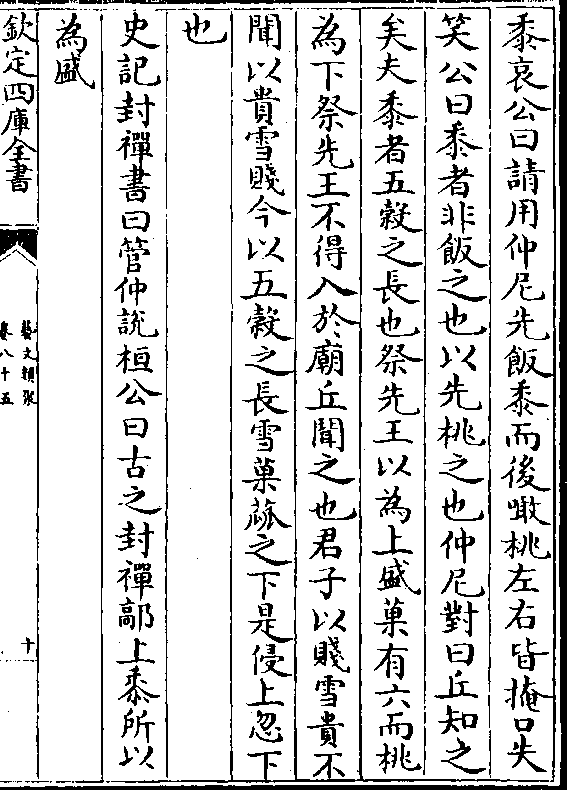 黍哀公曰請用仲尼先飯黍而後噉桃左右皆掩口失
笑公曰黍者非飯之也以先桃之也仲尼對曰丘知之
矣夫黍者五穀之長也祭先王以為上盛菓有六而桃
為下祭先王不得入於廟丘聞之也君子以賤雪貴不
聞以貴雪賤今以五穀之長雪菓蓏之下是侵上忽下
也
史記封禪書曰管仲說桓公曰古之封禪鄗上黍所以
為盛
欽定四庫全書
藝文類聚
卷八十五
十